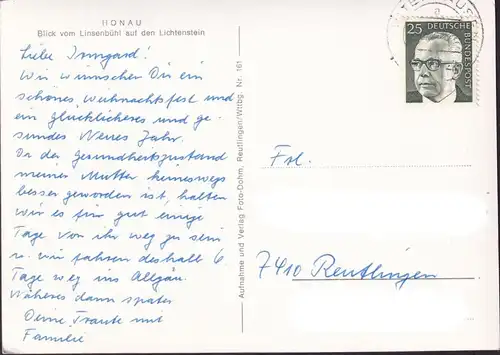 HONAU
Blick vom Linsenbühl auf den Lichtenstein
Liebe Irmgard!
Wir wünschen Dir ein
schönes Weihnachtsfest und
ein glücklicheres und ge-
sundes Neues Jahr.
Da der Gesundheitszustand
meiner Mutter keineswegs
besser geworden ist, halten
wir es für gut einige
Tage von ihr weg zu sein
u. wir fahren deshalb 6
Tage weg ins Allgäu.
Näheres dann später
Deine Traute mit
Familie
Aufnahme und Verlag Foto-Dohm, Reutlingen/Wttbg. Nr. 161
25
DEUTSCHE
BUNDESPOST
Frl.
7410 Reutlingen